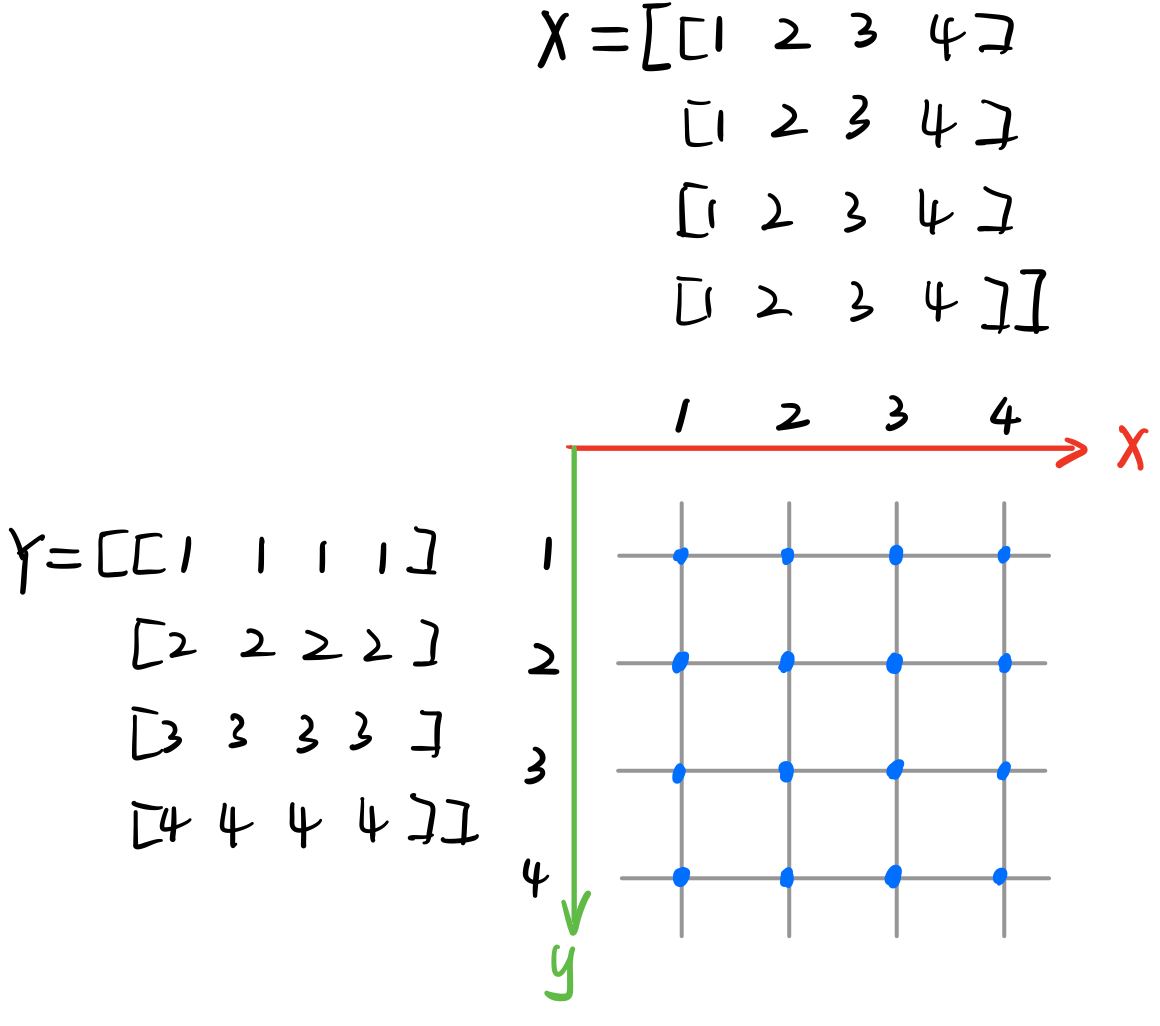 X = [[1 2 3 4]
[1 2 3 4]
[1 2 3 4]
[1 2 3 4]]
1 2 3 4
X
Y = [[1 1 1 1]
[2 2 2 2]
[3 3 3 3]
[4 4 4 4]]
1
2
3
4
y